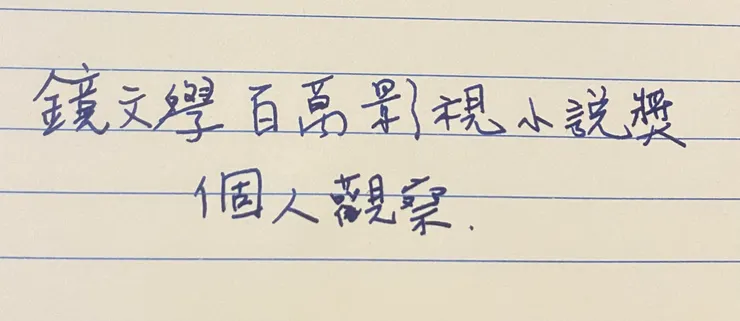 鏡文學百萬影視小說獎
個人觀察.